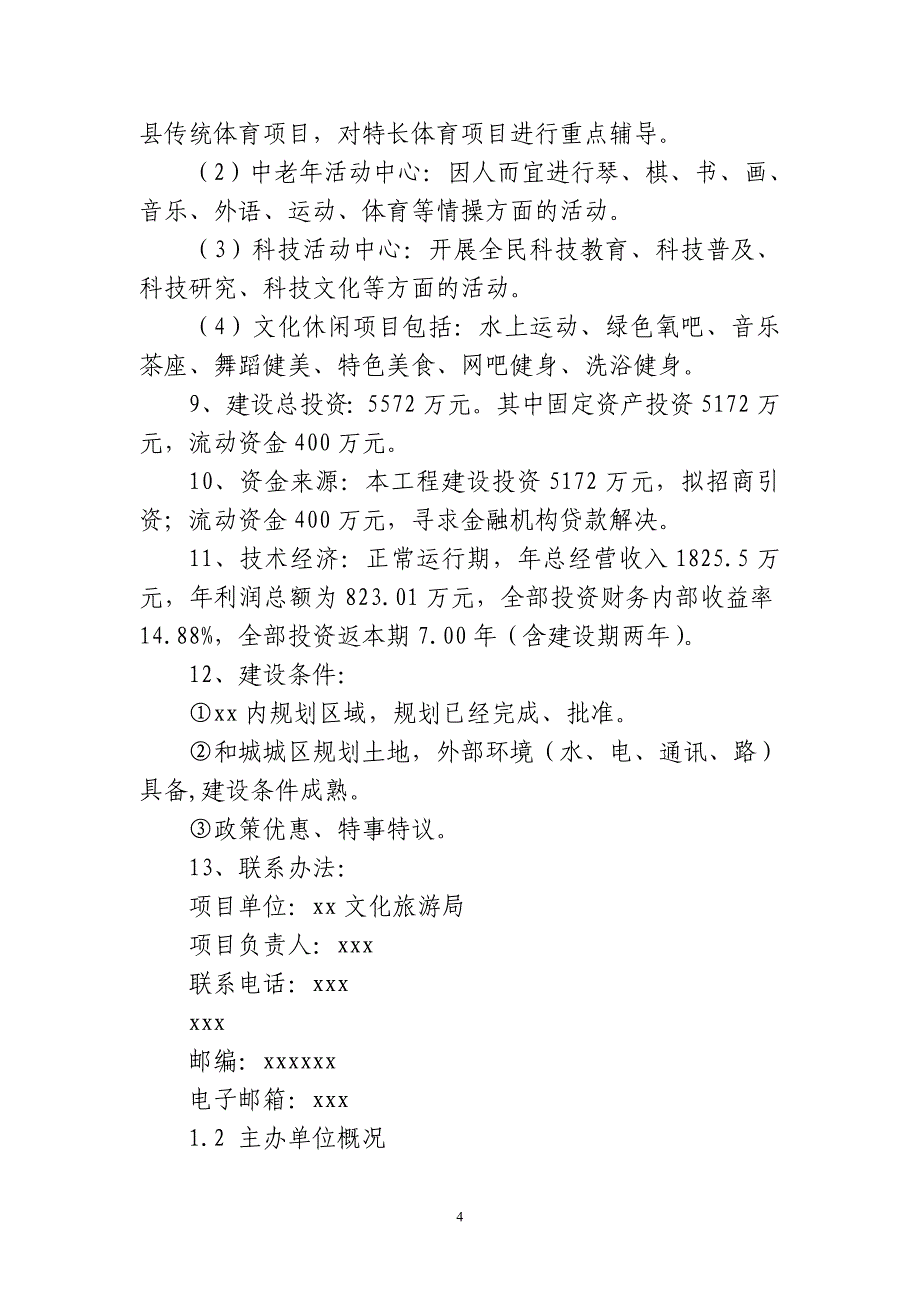 县传统体育项目，对特长体育项目进行重点辅导。
（2）中老年活动中心：因人而宜进行琴、棋、书、画、
音乐、外语、运动、体育等情操方面的活动。
（3）科技活动中心：开展全民科技教育、科技普及、
科技研究、科技文化等方面的活动。
（4）文化休闲项目包括：水上运动、绿色氧吧、音乐
茶座、舞蹈健美、特色美食、网吧健身、洗浴健身。
9、建设总投资：5572 万元。其中固定资产投资 5172 万
元，流动资金 400 万元。
10、资金来源：本工程建设投资 5172 万元，拟招商引
资；流动资金 400 万元，寻求金融机构贷款解决。
11、技术经济：正常运行期，年总经营收入 1825.5 万
元，年利润总额为 823.01 万元，全部投资财务内部收益率
14.88%，全部投资返本期 7.00 年（含建设期两年）。
12、建设条件：
①xx 内规划区域，规划已经完成、批准。
②和城城区规划土地，外部环境（水、电、通讯、路）
具备,建设条件成熟。
③政策优惠、特事特议。
13、联系办法：
项目单位：xx 文化旅游局
项目负责人：xxx
联系电话：xxx
xxx
邮编：xxxxxx
电子邮箱：xxx
1.2 主办单位概况
4